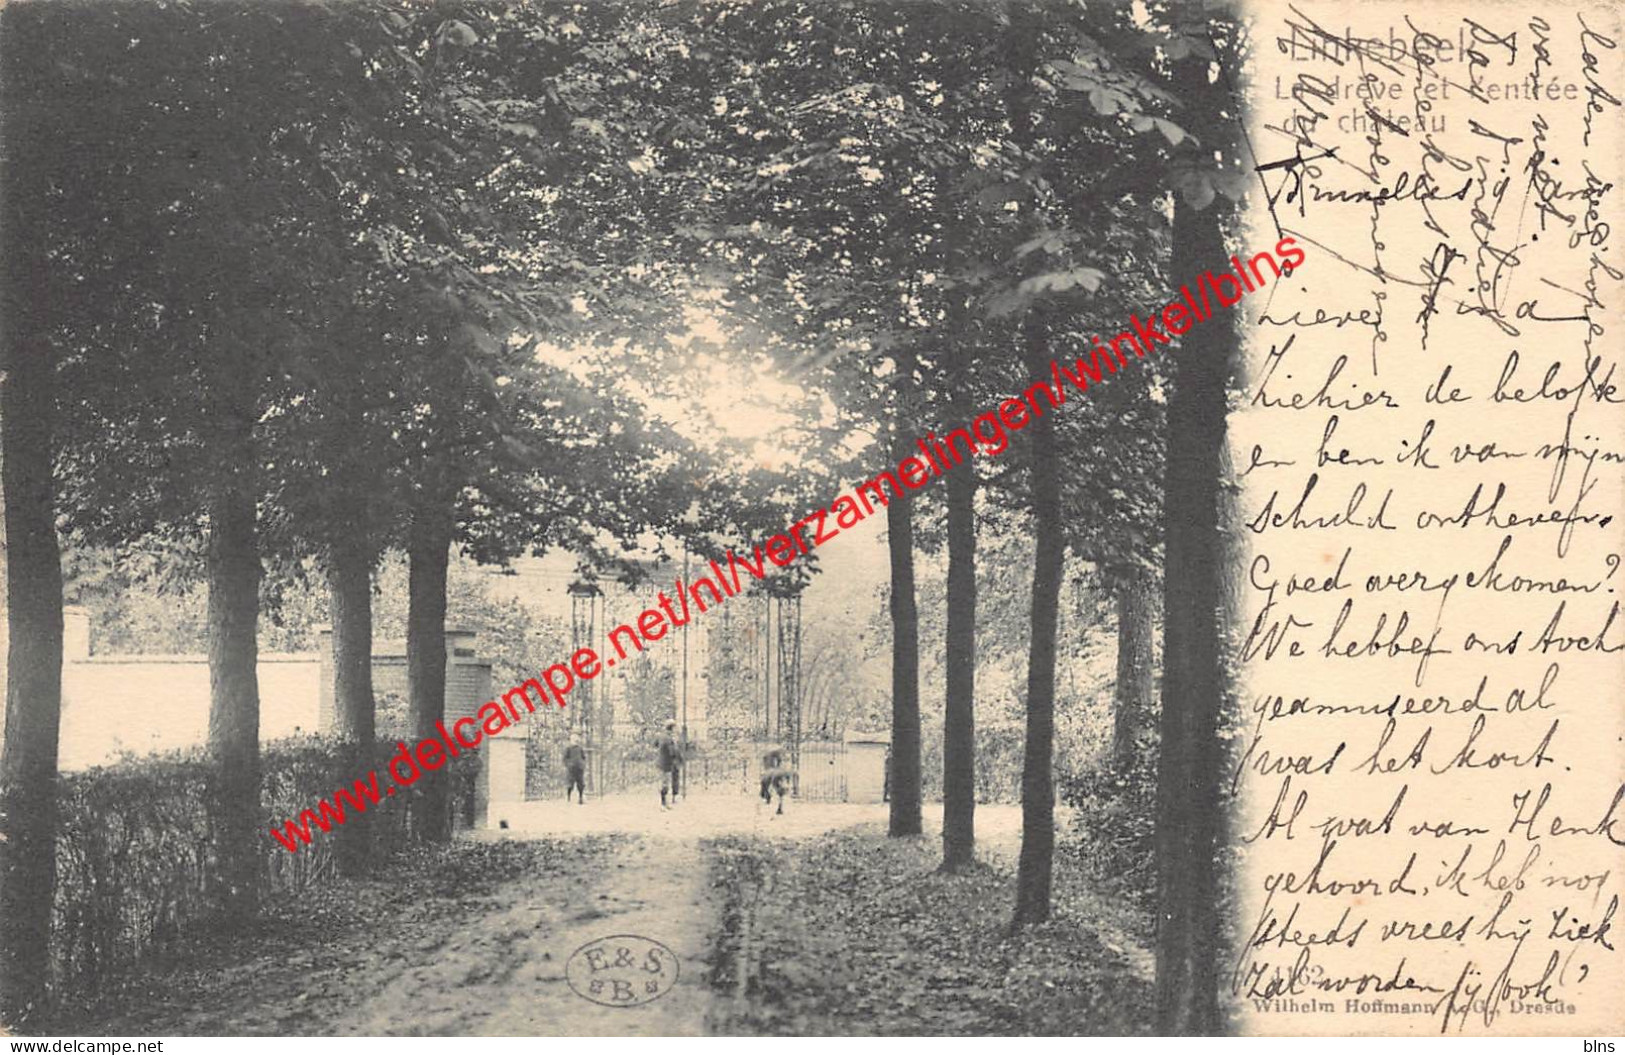 Linkebeek
La drève et l'entrée
du château
Bruxelles 19 Jan
Lieve
Ziehier de belofte
en ben ik van mijn
schuld ontheven.
Goed overgekomen?
We hebben ons toch
geamuseerd al
was het kort.
Al wat van Henk
gehoord, ik heb nog
steeds vrees hij ziek
zal worden jij ook?
laten we 't hopen
van niet.
Dag
1162
Wilhelm Hoffmann A.-G., Dresde
E. & S.
B.
www.delcampe.net/nl/verzamelingen/winkel/blns
www.delcampe.net
blns